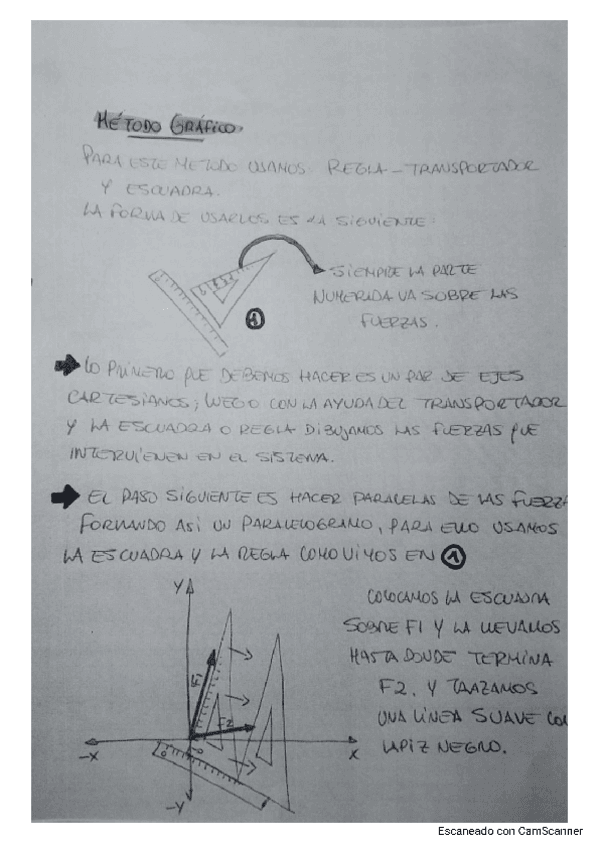 MÉTODO GRÁFICO.
PARA ESTE METODO USAMOS: REGLA - TRANSPORTADOR
Y ESCUADRA.
LA FORMA DE USARLOS ES LA SIGUIENTE:
SIEMPRE LA PARTE
NUMERIDA VA SOBRE LAS
FUERZAS.
1
LO PRIMERO QUE DEBEMOS HACER ES UN PAR DE EJES
CARTESIANOS; LUEGO CON LA AYUDA DEL TRANSPORTADOR
Y LA ESCUADRA O REGLA DIBUJAMOS LAS FUERZAS QUE
INTERVIENEN EN EL SISTEMA.
EL PASO SIGUIENTE ES HACER PARALELAS DE LAS FUERZA
FORMANDO ASI UN PARALELOGRAMO, PARA ELLO USAMOS
LA ESCUADRA Y LA REGLA COMO VIMOS EN 1
COLOCAMOS LA ESCUADRA
SOBRE F1 Y LA LLEVAMOS
HASTA DONDE TERMINA
F2. Y TRAZAMOS
UNA LÍNEA SUAVE CO
LAPIZ NEGRO.
Y
F1
F2
-X
X
-Y
Escaneado con CamScanner